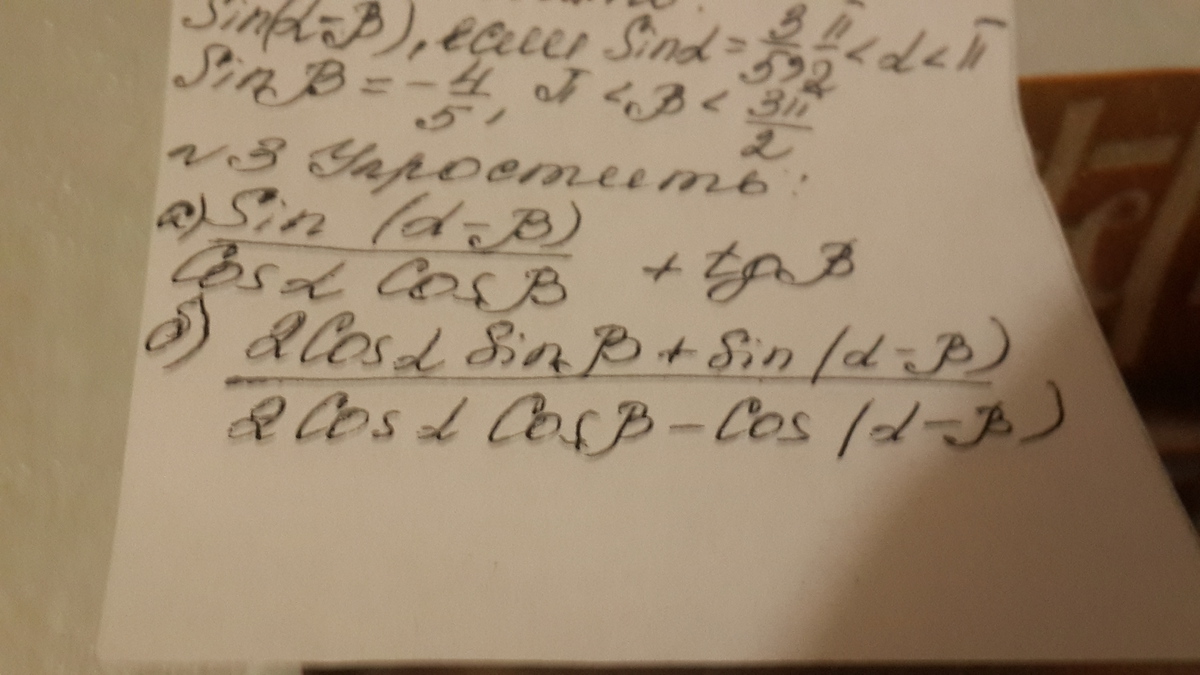 Sin(α-β), если Sinα = 3/5, π/2 < α < π
Sin β = -4/5, π < β < 3π/2
№3 Упростить:
а) Sin (α-β) / Cosα Cosβ + tgβ
б) 2Cosα Sinβ + Sin (α-β) / 2Cosα Cosβ - Cos (α-β)